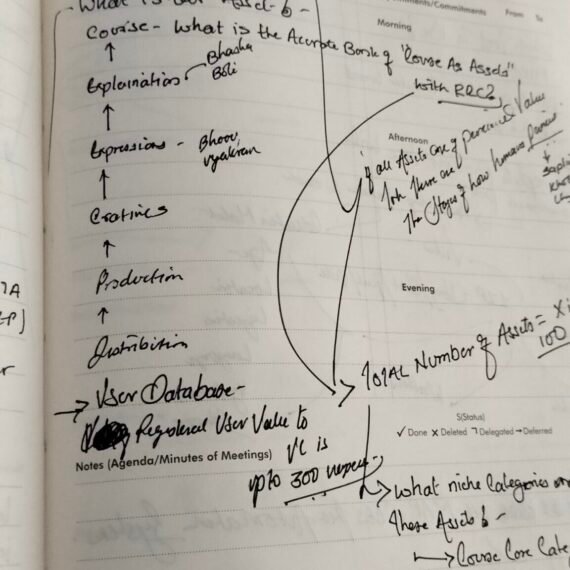 What is our Asset-
ments/Commitments From To
Morning
Course - What is the Accurate Bank of "Course As Assets"
with RRC?
Explaination Bhasha
Boli
Afternoon
Expressions - Bhaav,
vyakran
if all Assets are of perceived Value
Then there are
The Stages of how humans
Creatives
Production
Evening
Distribution
TOTAL Number of Assets = X
100
User Database -
S(Status)
✓ Done X Deleted ㄱ Delegated → Deferred
Registered User Value to
VC is
upto 300 rupees
Notes (Agenda/Minutes of Meetings)
What niche Categories
These Assets
Course Core Cate